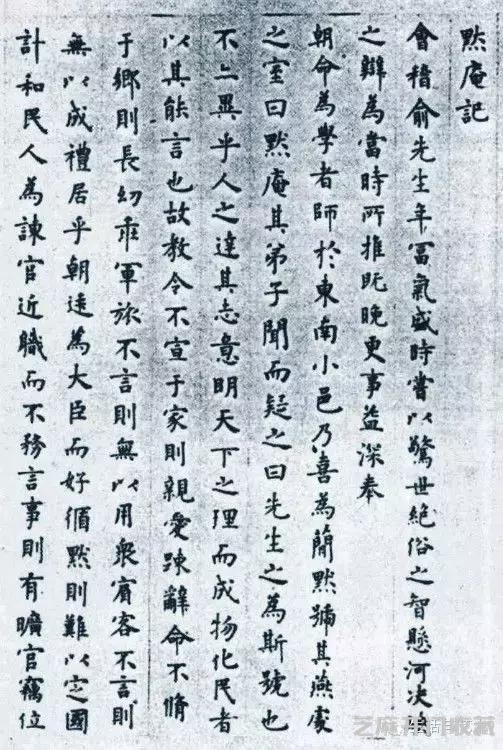 默庵記
會稽俞先生年冨氣盛時嘗以驚世絶俗之智懸河决
之辯為當時所推既晚更事益深奉
朝命為學者師於東南小邑乃喜為簡默號其燕處
之室曰默庵其弟子聞而疑之曰先生之為斯號也
不亦異乎人之達其志意明天下之理而成物化民者
以其能言也故教令不宣于家則親愛踈辭命不脩
于鄉則長幼乖軍旅不言則無以用衆賓客不言則
無以成禮居乎朝逺為大臣而好循默則難以定國
計和民人為諫官近職而不務言事則有曠官竊位